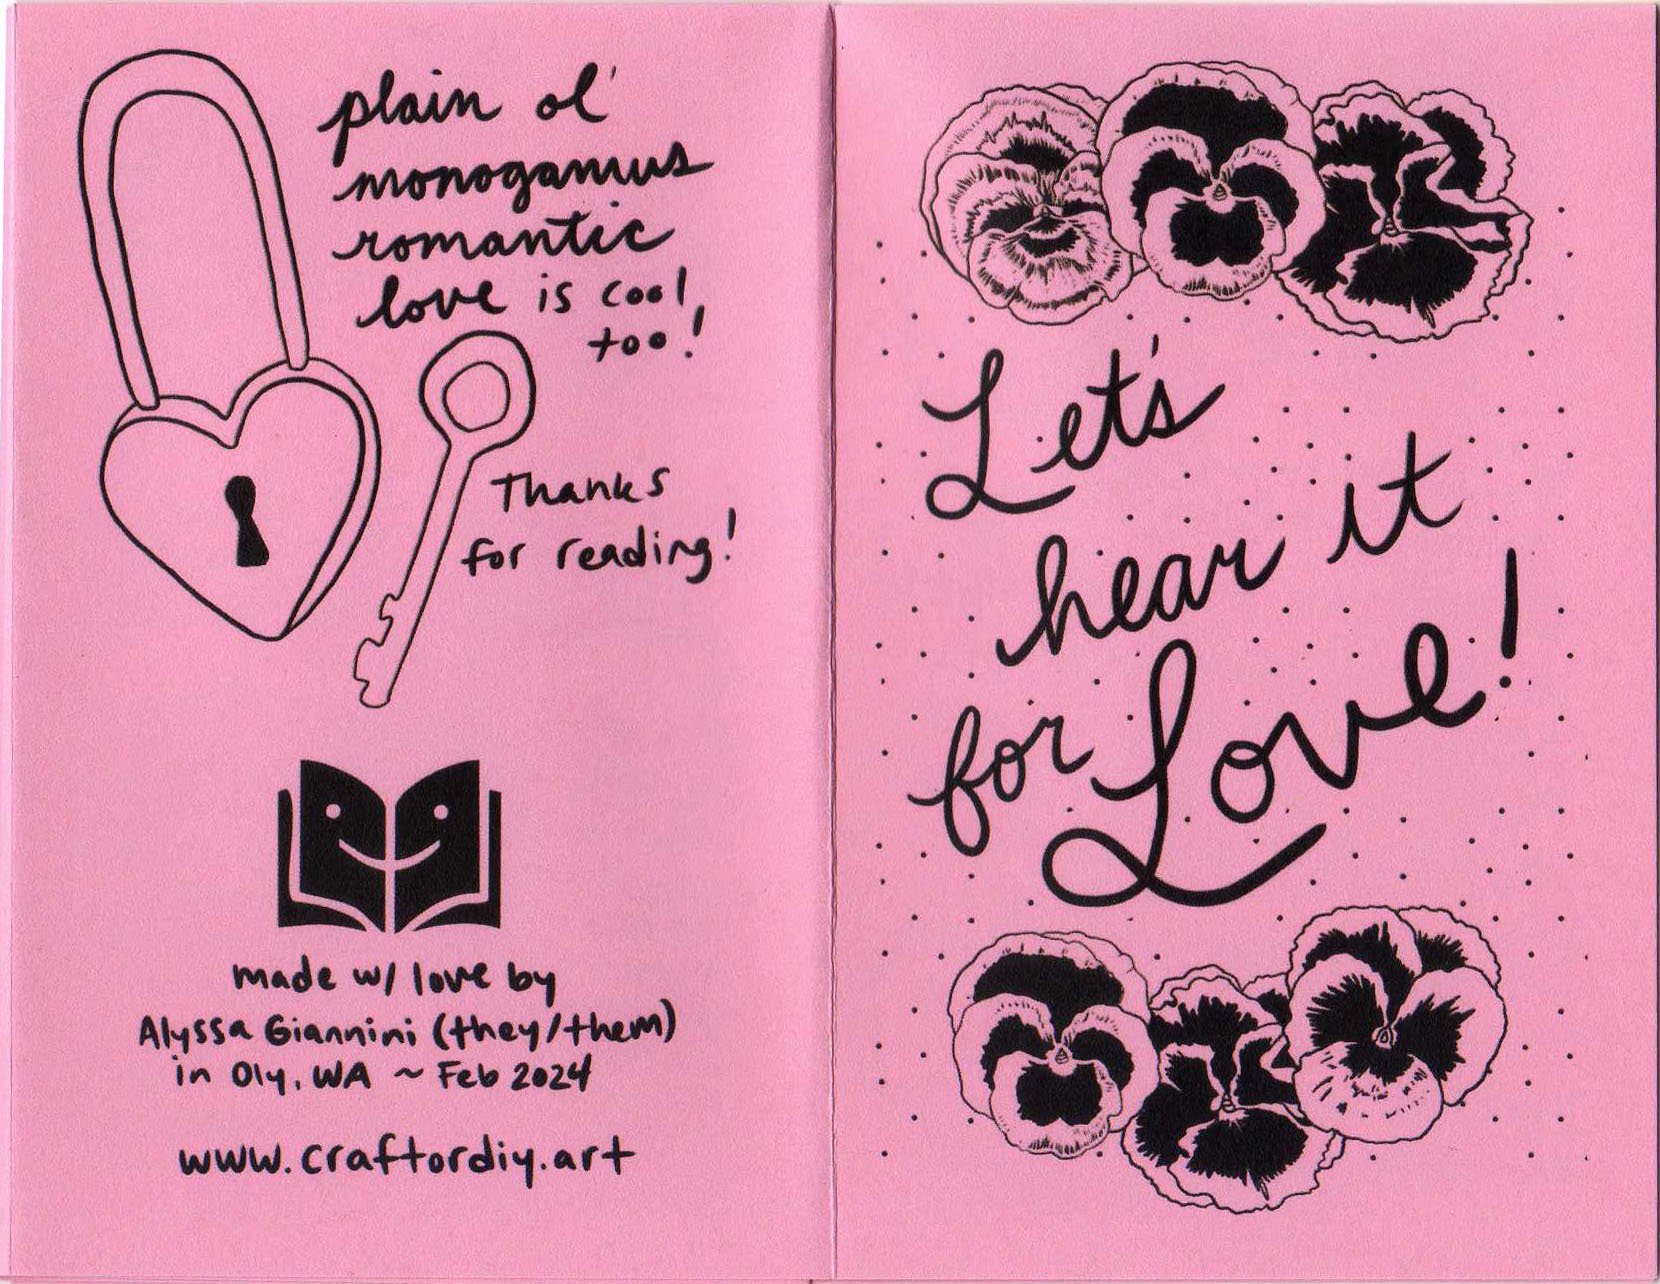 plain ol'
monogamus
romantic
love is cool
too!
Thanks
for reading!
made w/ love by
Alyssa Giannini (they/them)
in Oly, WA ~ Feb 2024
www.craftordiy.art
Let's
hear it
for Love!